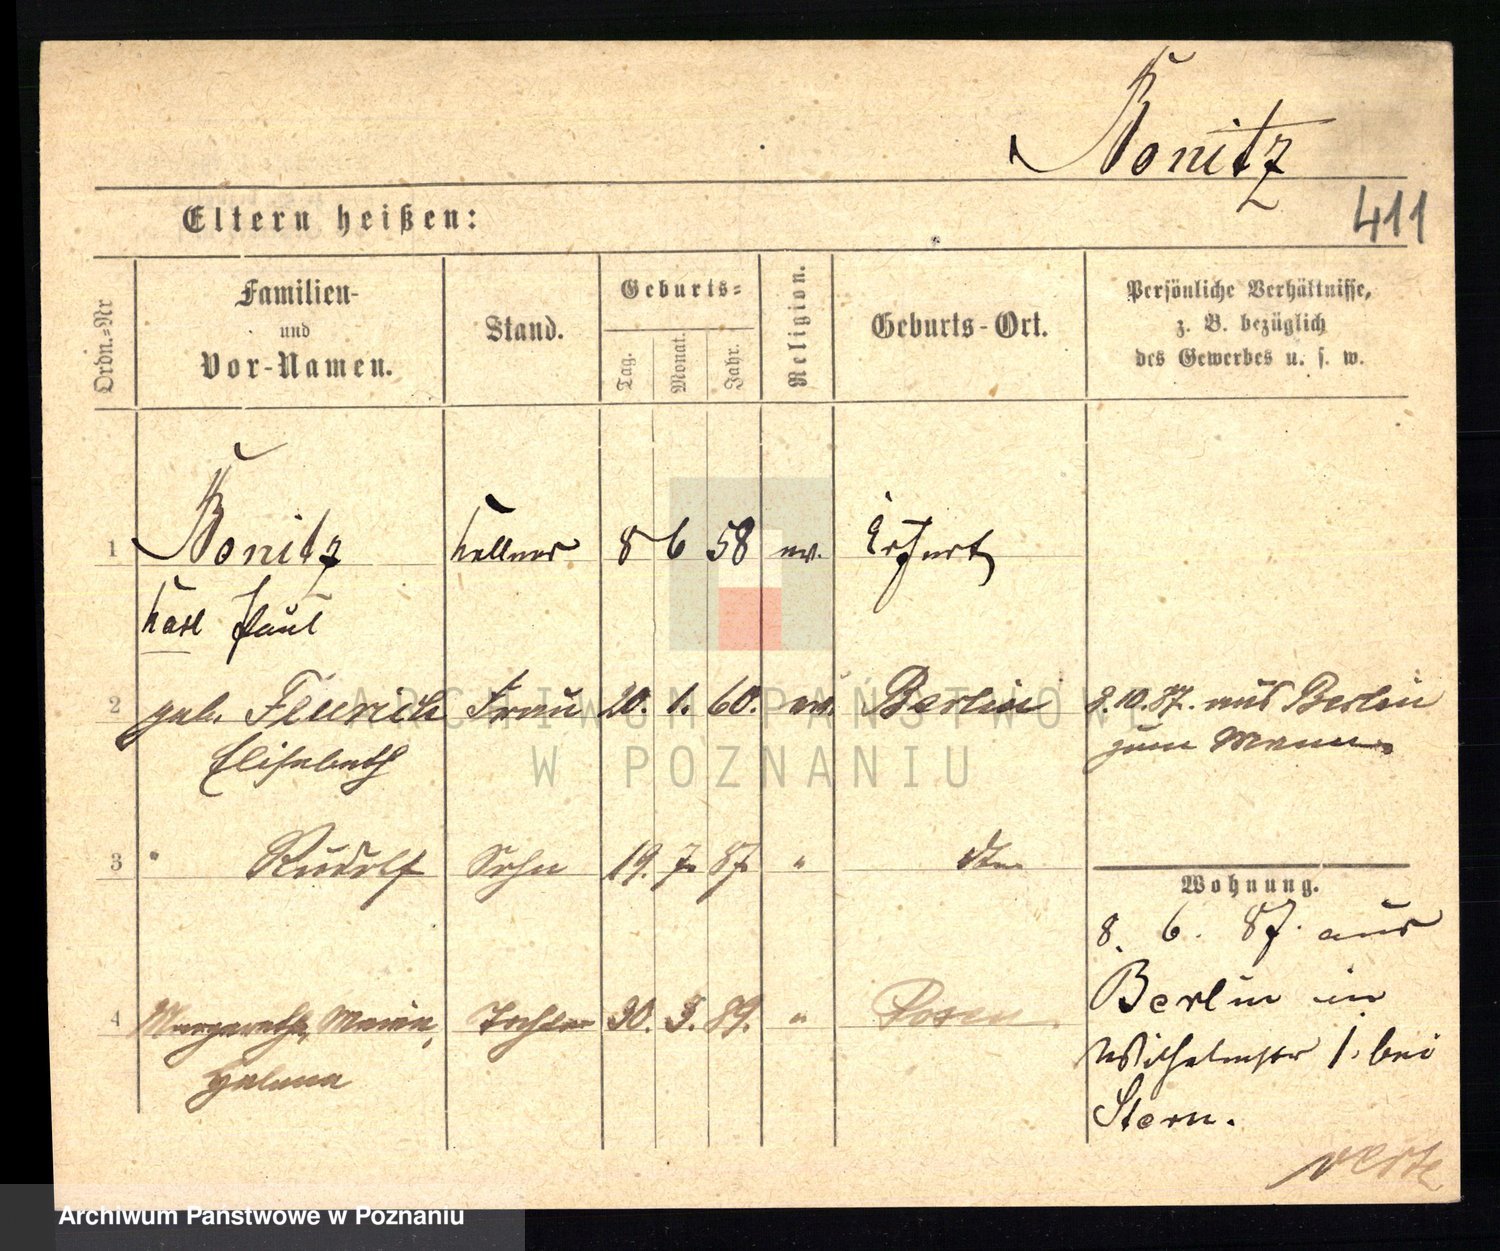 Bonitz
411
Eltern heißen:
Ordn.-Nr
Familien-
und
Vor-Namen.
Stand.
Geburts-
Tag.
Monat.
Jahr.
Religion.
Geburts-Ort.
Persönliche Verhältnisse,
z. B. bezüglich
des Gewerbes u. s. w.
1 Bonitz Kellner 8 6 58 ev. Erfurt
Karl Paul
2 geb. Flurich Frau 20. 1. 60. ev. Berlin 3.10.87. aus Berlin
Elisabeth zum Manne.
3 " Rudolf Sohn 19. 7. 87. " dto
Wohnung.
8. 6. 87. aus
Berlin in
4 Margarethe, Maria, Tochter 30. 3. 89. " Posen
Helena
Wilhelmstr 1. bei
Stern.
verte
ARCHIWUM PAŃSTWOWE
W POZNANIU
Archiwum Państwowe w Poznaniu